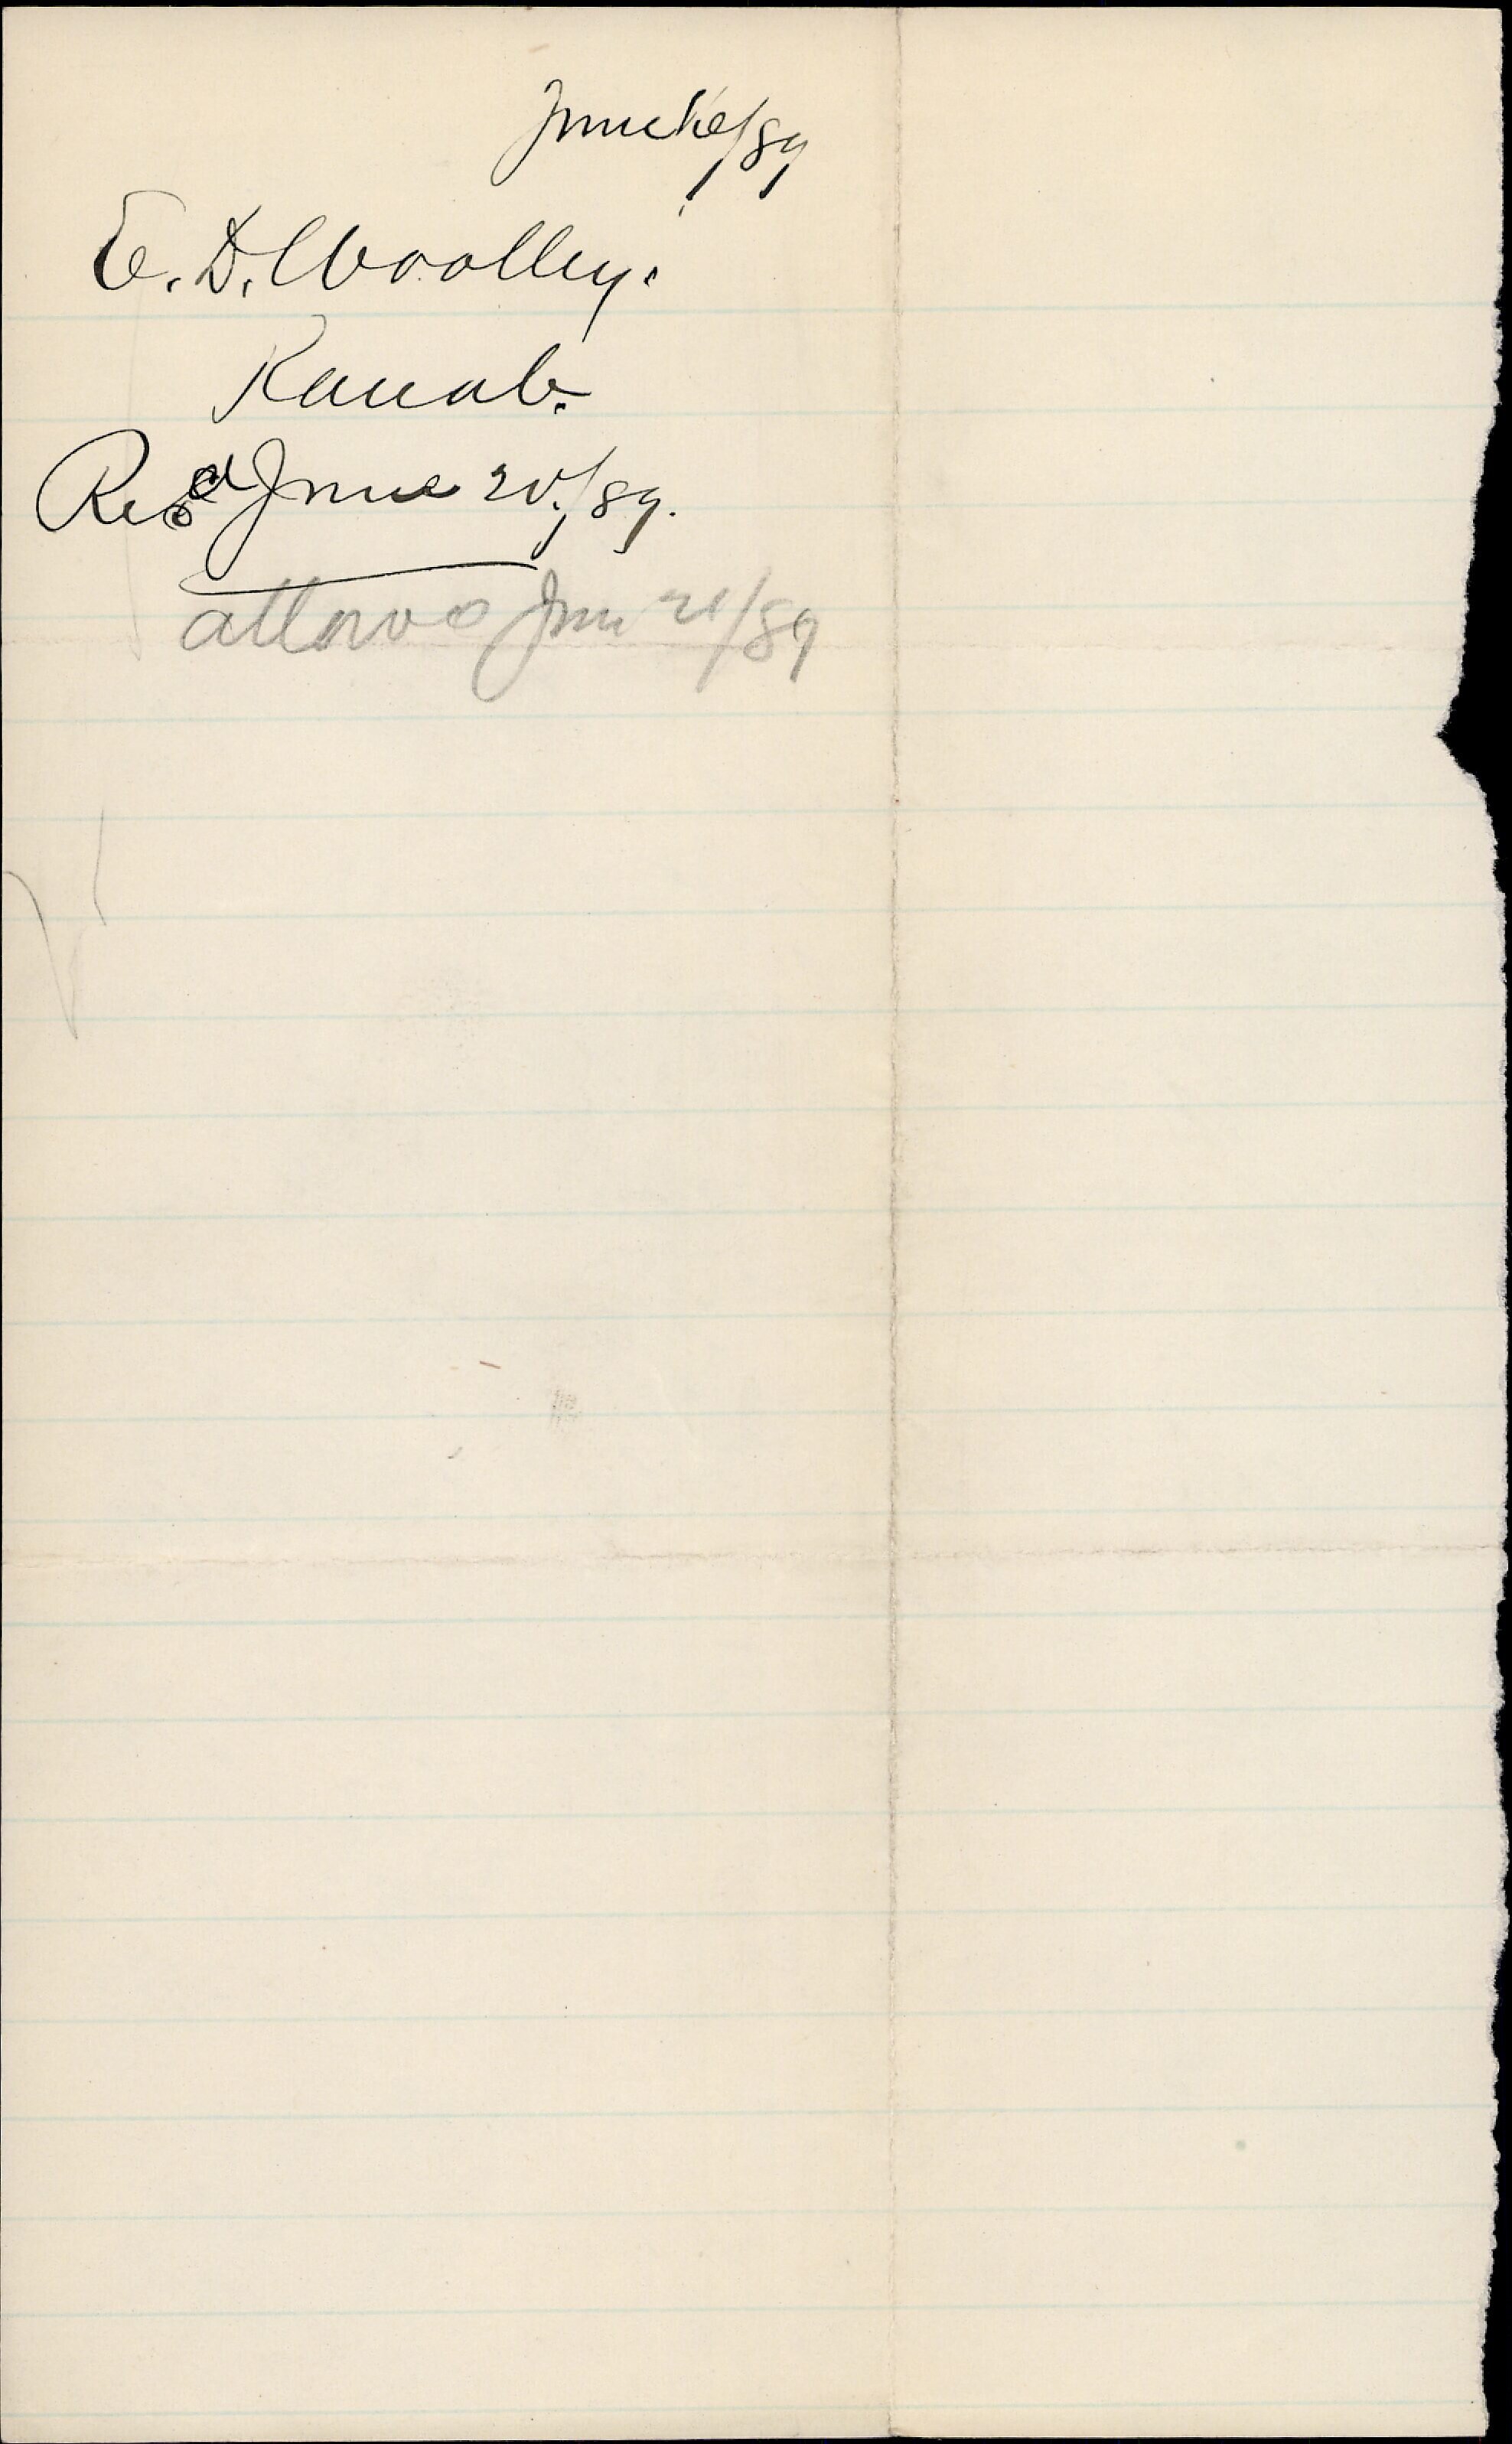 June 16/89
E. D. Woolley.
Kanab.
Recd June 20./89.
allowd June 21/89